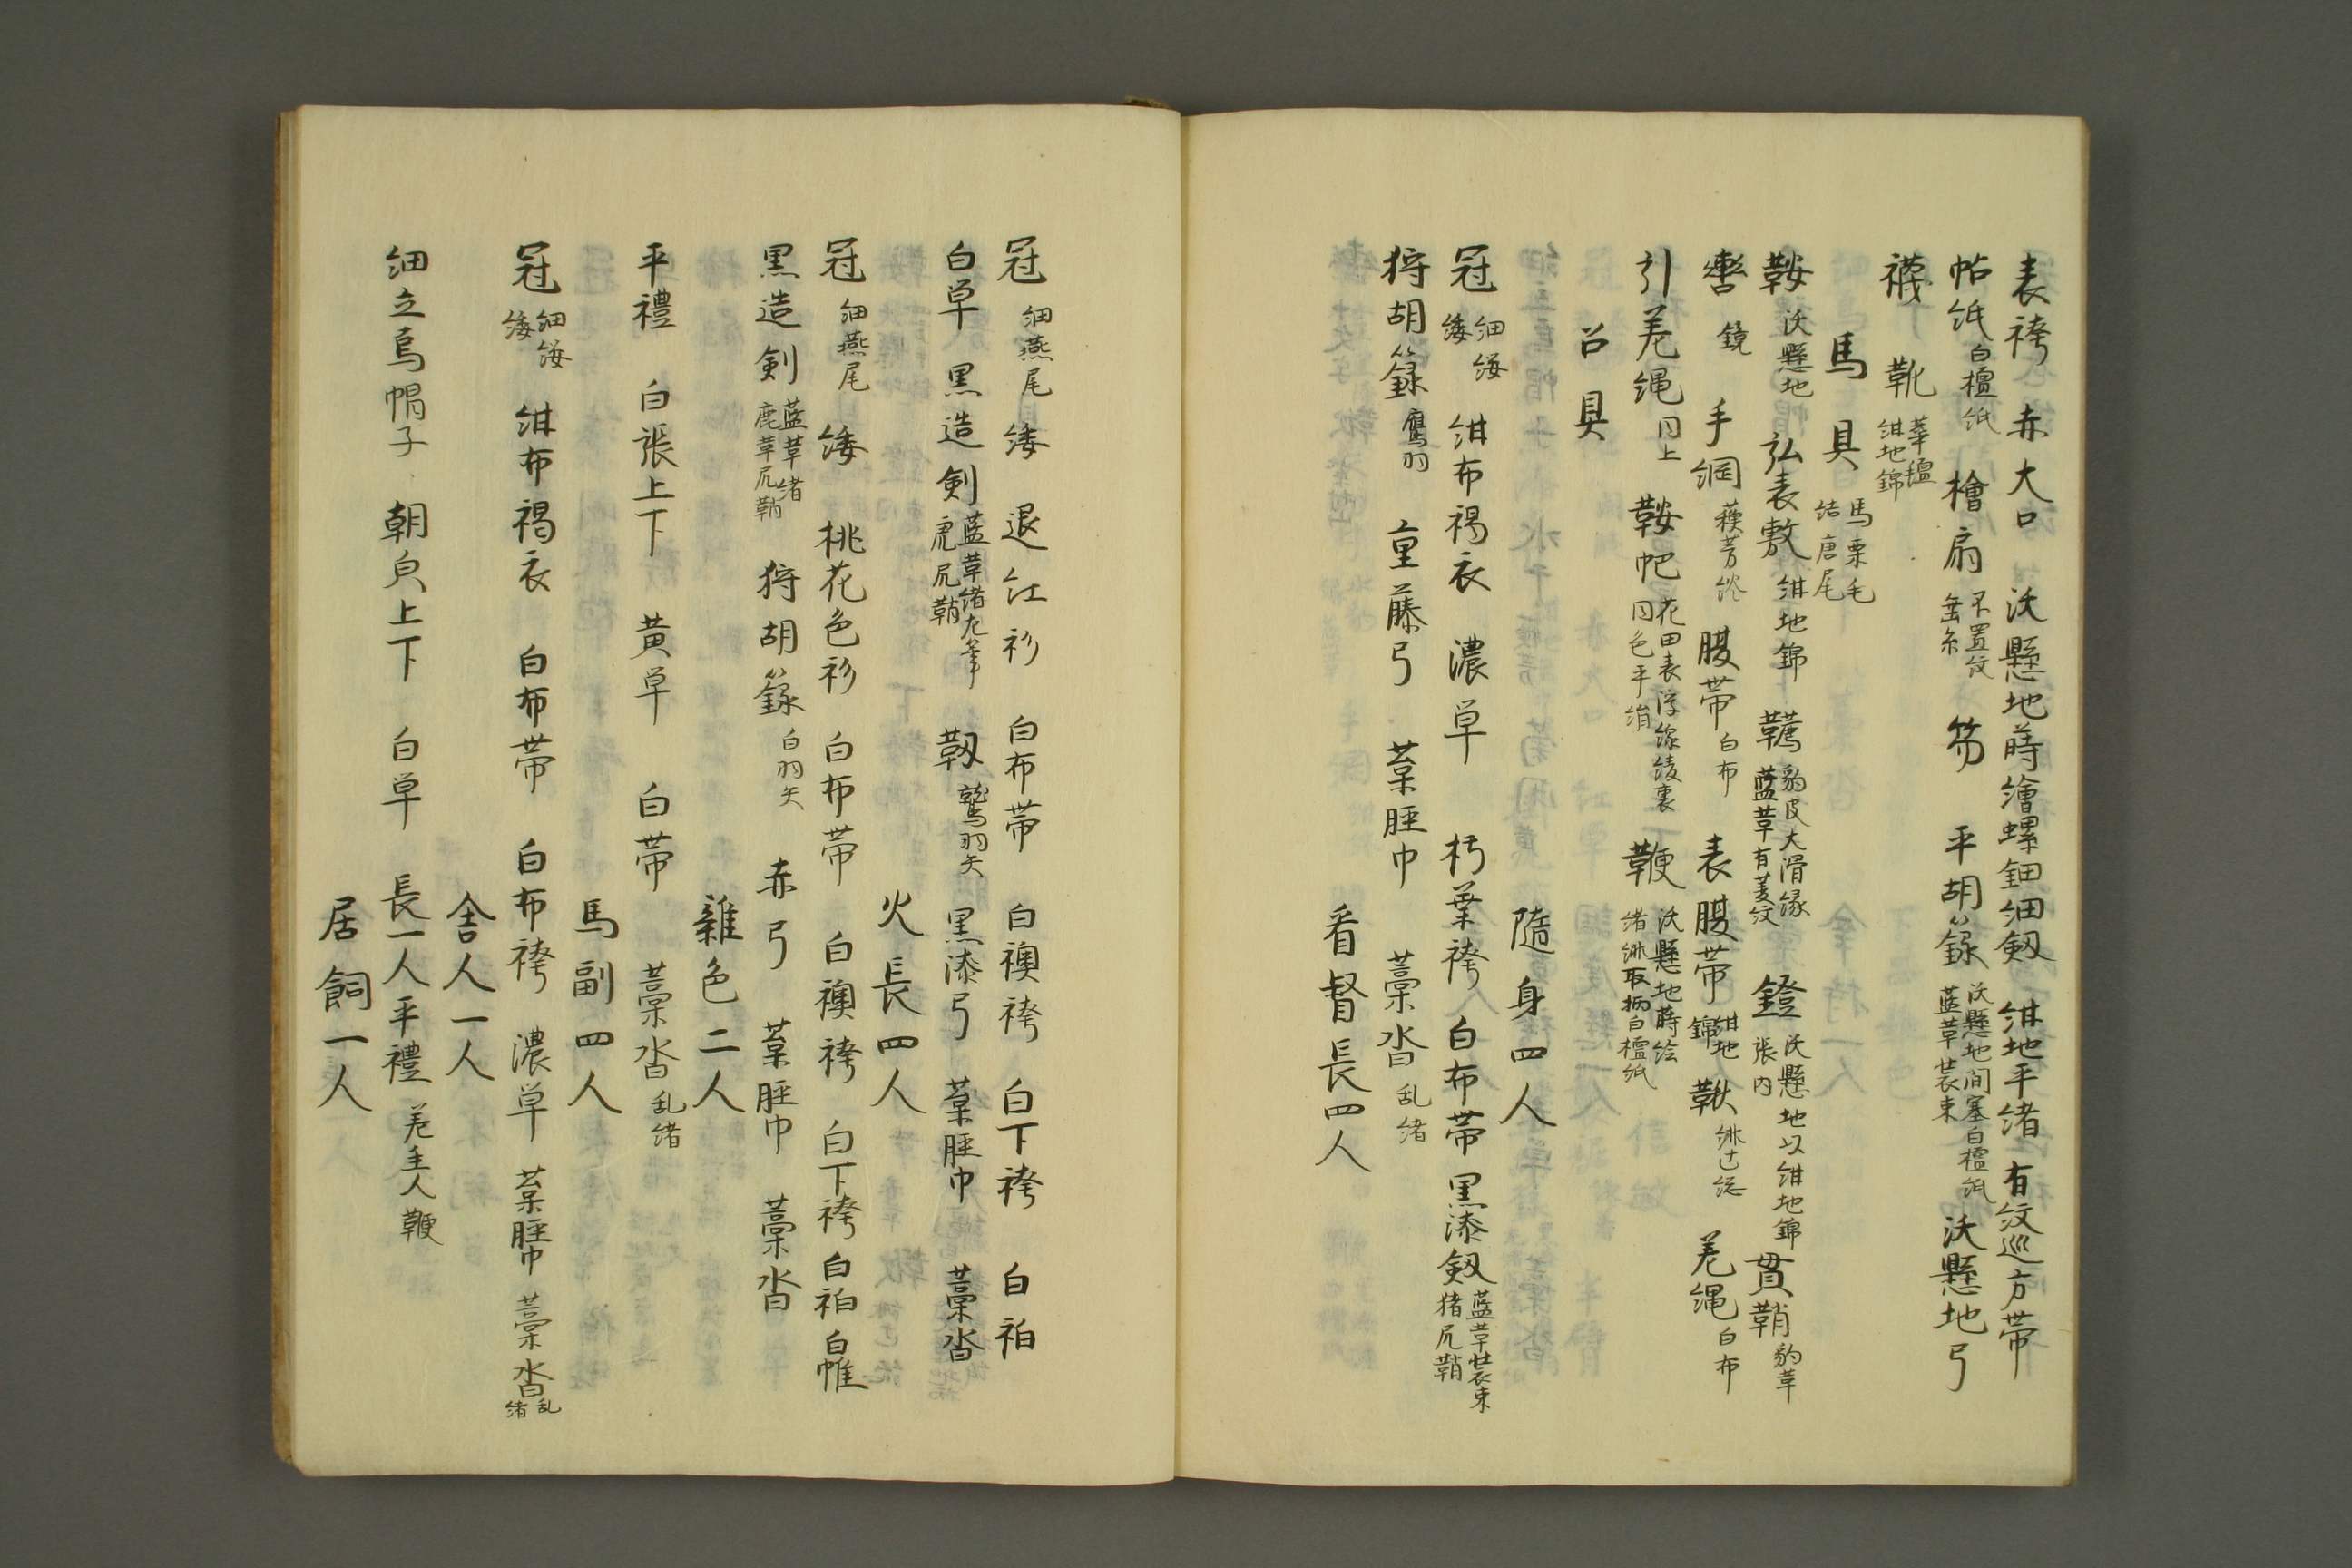 表袴 赤大口 沃懸地蒔繪螺鈿細剱 紺地平緒 有紋巡方帯
帖紙 白檀紙 檜扇 不置紋 無糸 笏 平胡籙 沃懸地間塞白檀紙 藍革装束 沃懸地弓
襪 靴 華氊 紺地錦
馬具 馬栗毛 結唐尾
鞍 沃懸地 弘表敷 紺地錦 韉 豹皮大滑縁 藍革有菱紋 鐙 沃懸地以紺地錦 張内 貫鞘 豹革
轡 鏡 手綱 蘇芳 腹帯 白布 表腹帯 紺地 錦 鞦 差縄 白布
引差縄 同上 鞍帊 花田表浮線綾裏 同色平絹 鞭 沃懸地蒔絵 緒緋取柄白檀紙
召具
隨身四人
冠 細纓 緌 紺布褐衣 濃単 朽葉袴 白布帯 黒漆剱 藍革装束 猪尻鞘
狩胡籙 鷹羽 重藤弓 葈脛巾 藁沓 乱緒
看督長四人
冠 細燕尾 緌 退紅衫 白布帯 白襖袴 白下袴 白袙
白単 黒造剣 藍革緒 虎尻鞘 靫 鷲羽矢 黒漆弓 葈脛巾 藁沓
火長四人
冠 細燕尾 緌 桃花色衫 白布帯 白襖袴 白下袴 白袙 白帷
黒造剣 藍革緒 鹿革尻鞘 狩胡籙 白羽矢 赤弓 葈脛巾 藁沓
雜色二人
平禮 白張上下 黄単 白帯 藁沓 乱緒
馬副四人
冠 細纓 緌 紺布褐衣 白布帯 白布袴 濃単 葈脛巾 藁沓 乱緒
舎人一人
細立烏帽子 朝負上下 白単 長一人平禮 鞭
居飼一人